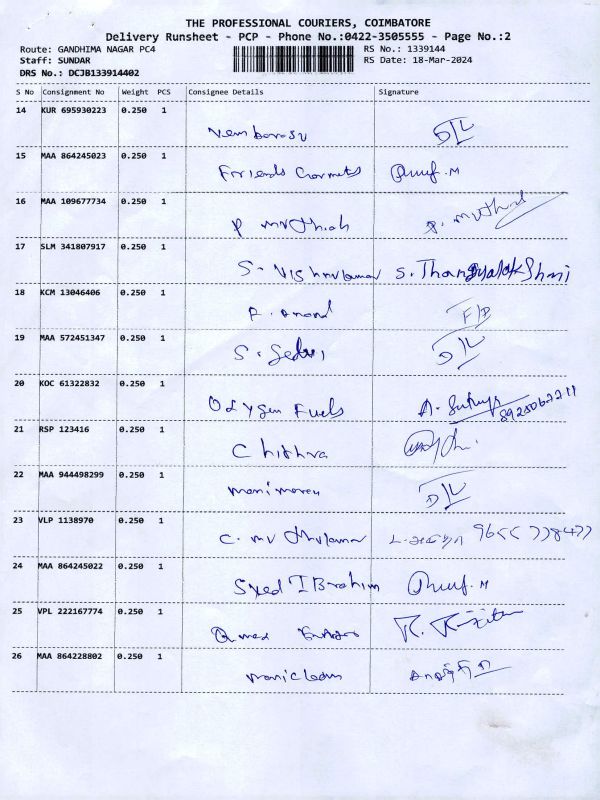 THE PROFESSIONAL COURIERS, COIMBATORE
Delivery Runsheet - PCP - Phone No.:0422-3505555 - Page No.:2
Route: GANDHIMA NAGAR PC4 RS No.: 1339144
Staff: SUNDAR RS Date: 18-Mar-2024
DRS No.: DCJB133914402
S No Consignment No Weight PCS Consignee Details Signature
14 KUR 695930223 0.250 1
D/L
15 MAA 864245023 0.250 1
Friends
16 MAA 109677734 0.250 1
P Muthiah P. Muthiah
17 SLM 341807917 0.250 1
S. Vishnukumar S. Thangalakshmi
18 KCM 13046406 0.250 1
P. Anand F/D
19 MAA 572451347 0.250 1
S. Selvi D/L
20 KOC 61322832 0.250 1
Fuels
21 RSP 123416 0.250 1
Chithra
22 MAA 944498299 0.250 1
manimaran D/L
23 VLP 1138970 0.250 1
C. Muthukumar
24 MAA 864245022 0.250 1
Syed IBrahim
25 VPL 222167774 0.250 1
26 MAA 864228802 0.250 1